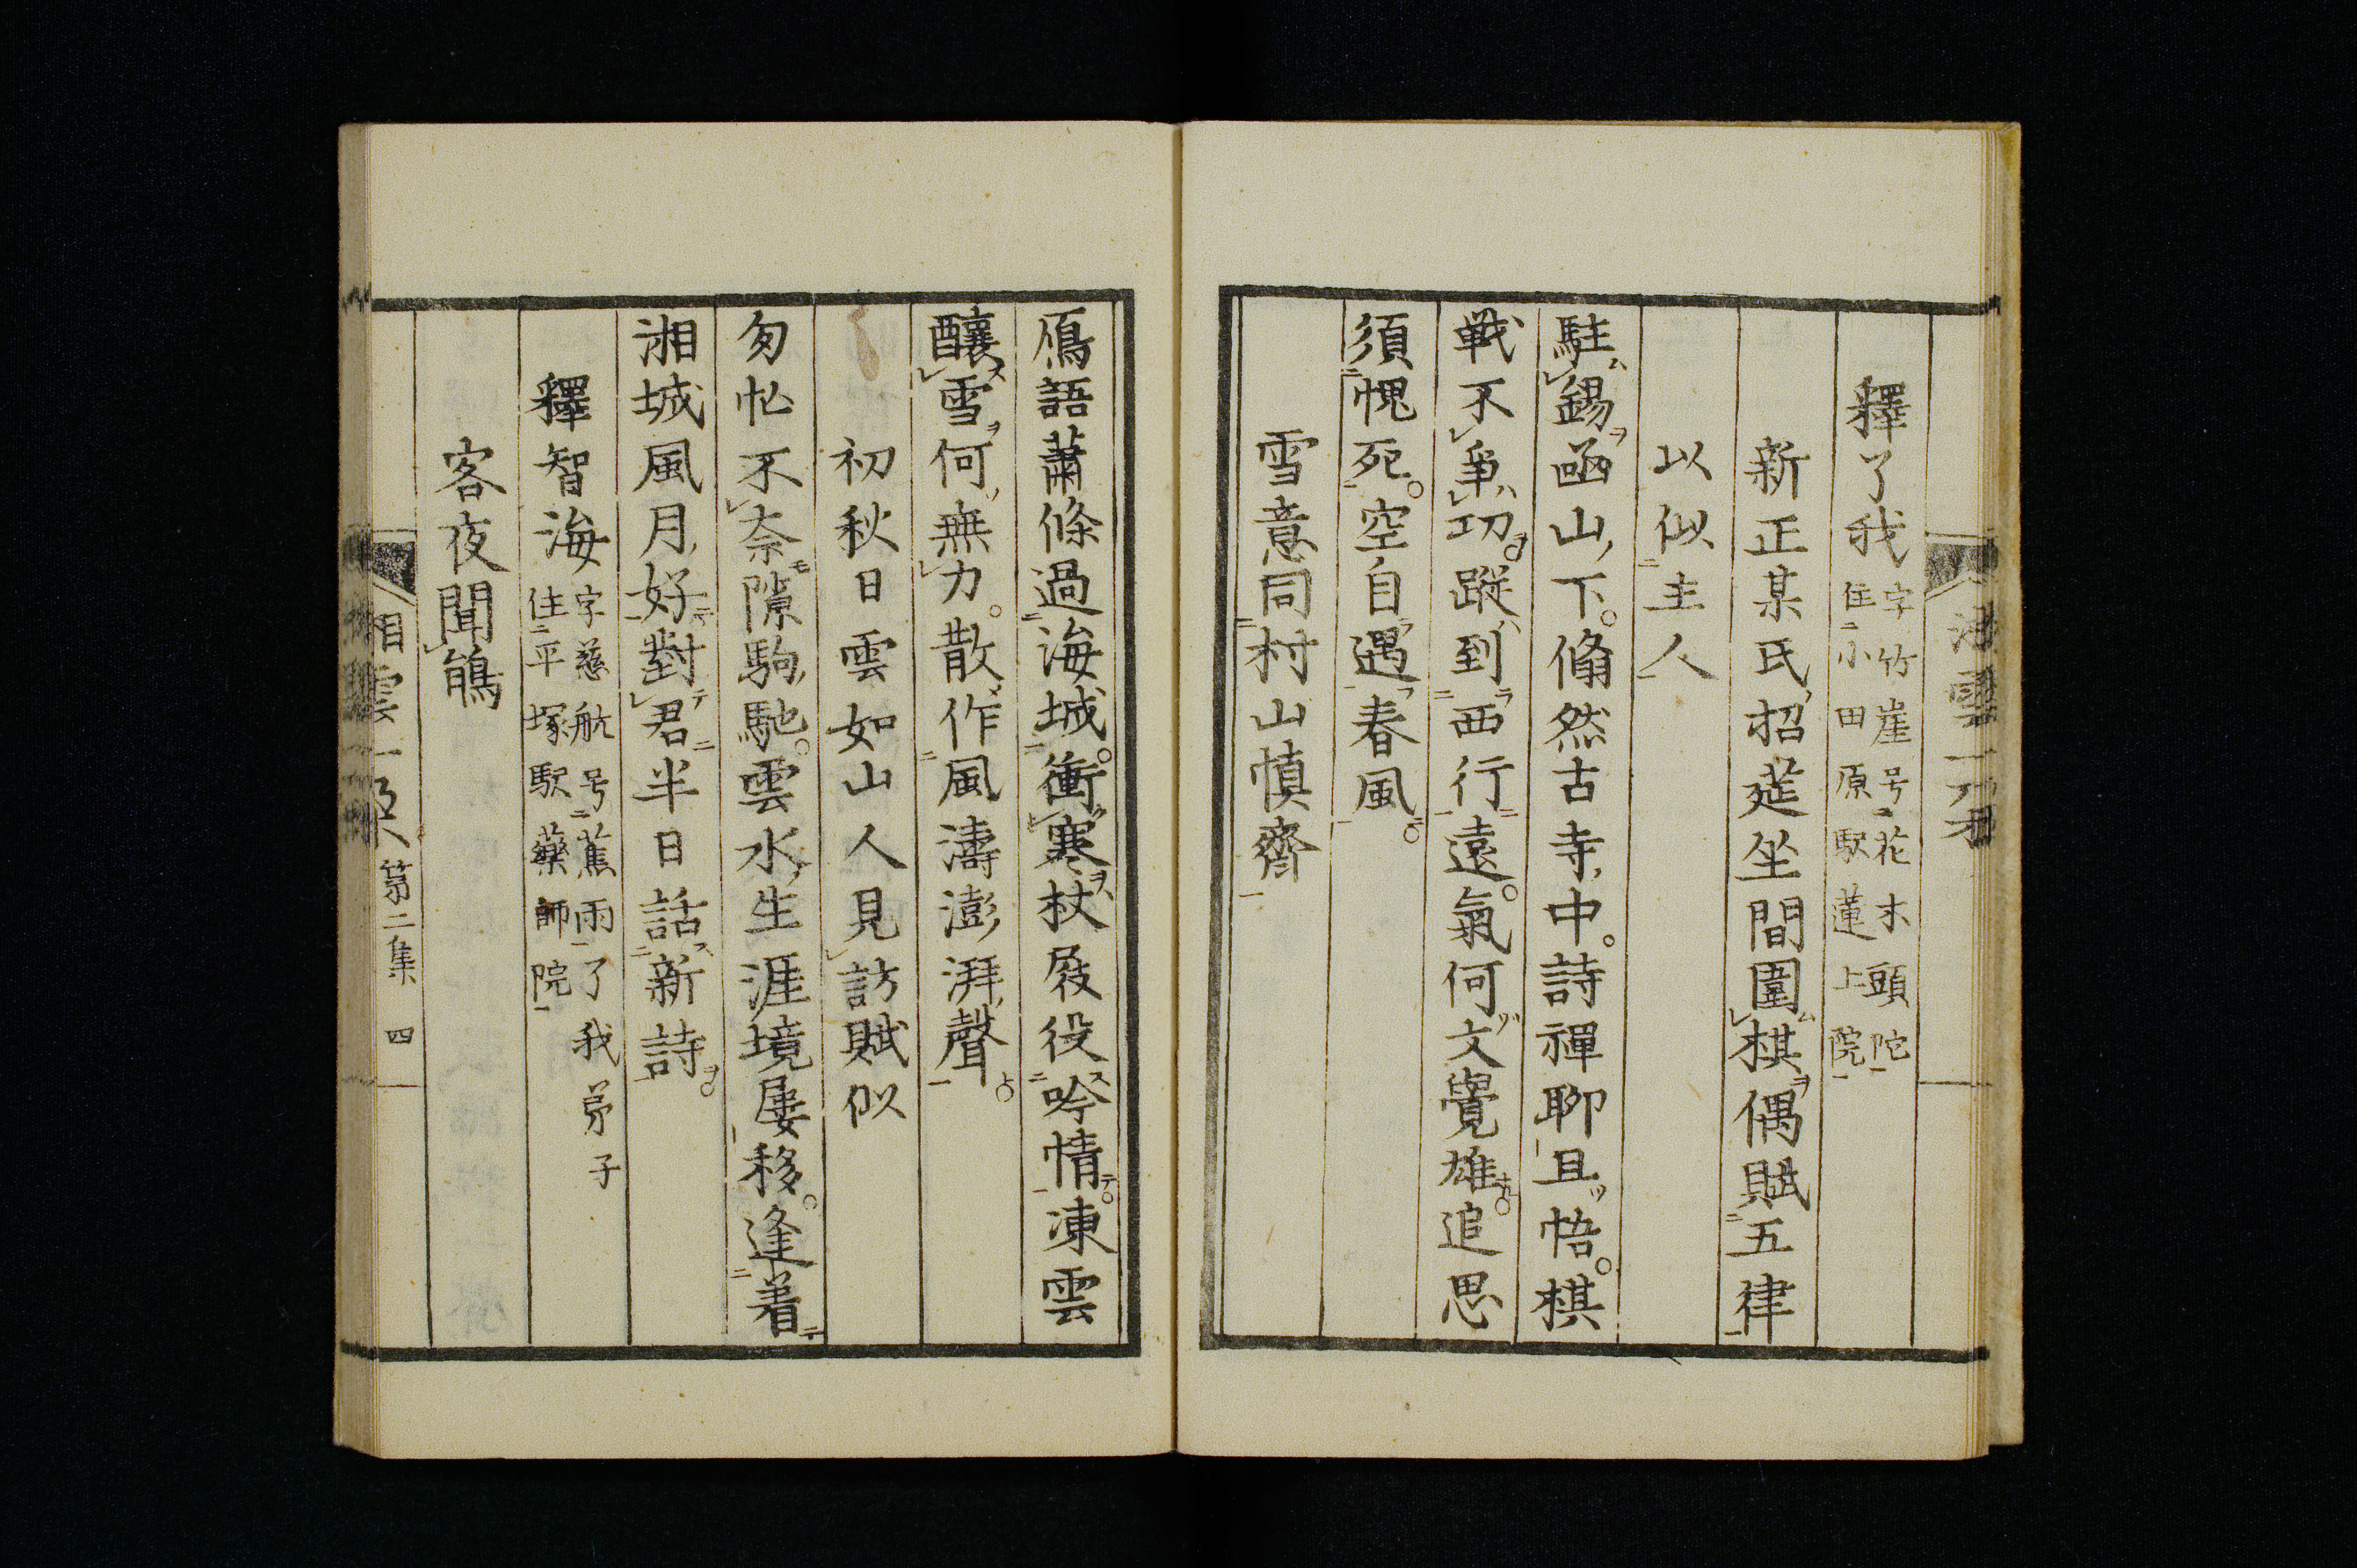 釋了我 字竹崖号花木頭陀
住小田原駅蓮上院
新正某氏招莚坐間圍棋偶賦五律
以似主人
駐錫凾山下。翛然古寺中。詩禪聊且悟。棋
戦不爭功。蹤到西行遠。氣何文覺雄。追思
須愧死。空自遇春風。
雪意同村山慎齋
鴈語蕭條過海城。衝寒杖屐役吟情。凍雲
釀雪何無力。散作風濤澎湃聲。
初秋日雲如山人見訪賦似
匆忙不奈隙駒馳。雲水生涯境屢移。逢着
湘城風月好。對君半日話新詩。
釋智海 字慈航号蕉雨了我弟子
住平塚駅藥師院
客夜聞鵑
相雲一
第二集 四